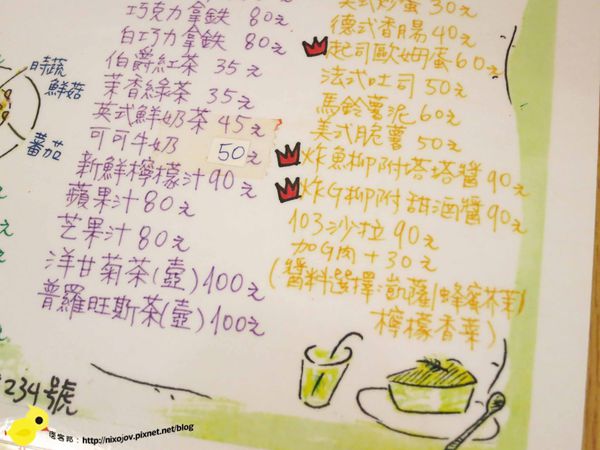 巧克力拿鐵 80元
白巧力拿鐵 80元
伯爵紅茶 35元
茉香綠茶 35元
英式鮮奶茶 45元
可可牛奶 50元
新鮮檸檬汁 90元
蘋果汁 80元
芒果汁 80元
洋甘菊茶(壺) 100元
普羅旺斯茶(壺) 100元
美式炒蛋 30元
德式香腸 40元
起司歐姆蛋 60元
法式吐司 50元
馬鈴薯泥 60元
美式脆薯 50元
炸魚柳附塔塔醬 90元
炸G柳附甜酒醬 90元
103沙拉 90元
加G肉+30元
(醬料選擇:凱薩/蜂蜜芥茉/
檸檬香葉)
時蔬
鮮菇
蕃茄
234號
痞客邦:http://nixojov.pixnet.net/blog